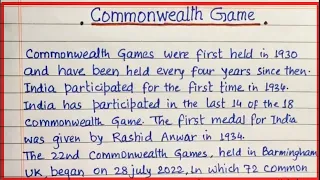 Commonwealth Game
Commonwealth Games were first held in 1930
and have been held every four years since then.
India participated for the first time in 1934.
India has participated in the last 14 of the 18
Commonwealth Game. The first medal for India
was given by Rashid Anwar in 1934.
The 22nd Commonwealth Games, held in Barmingham
UK, began on 28 july 2022, in which 72 common